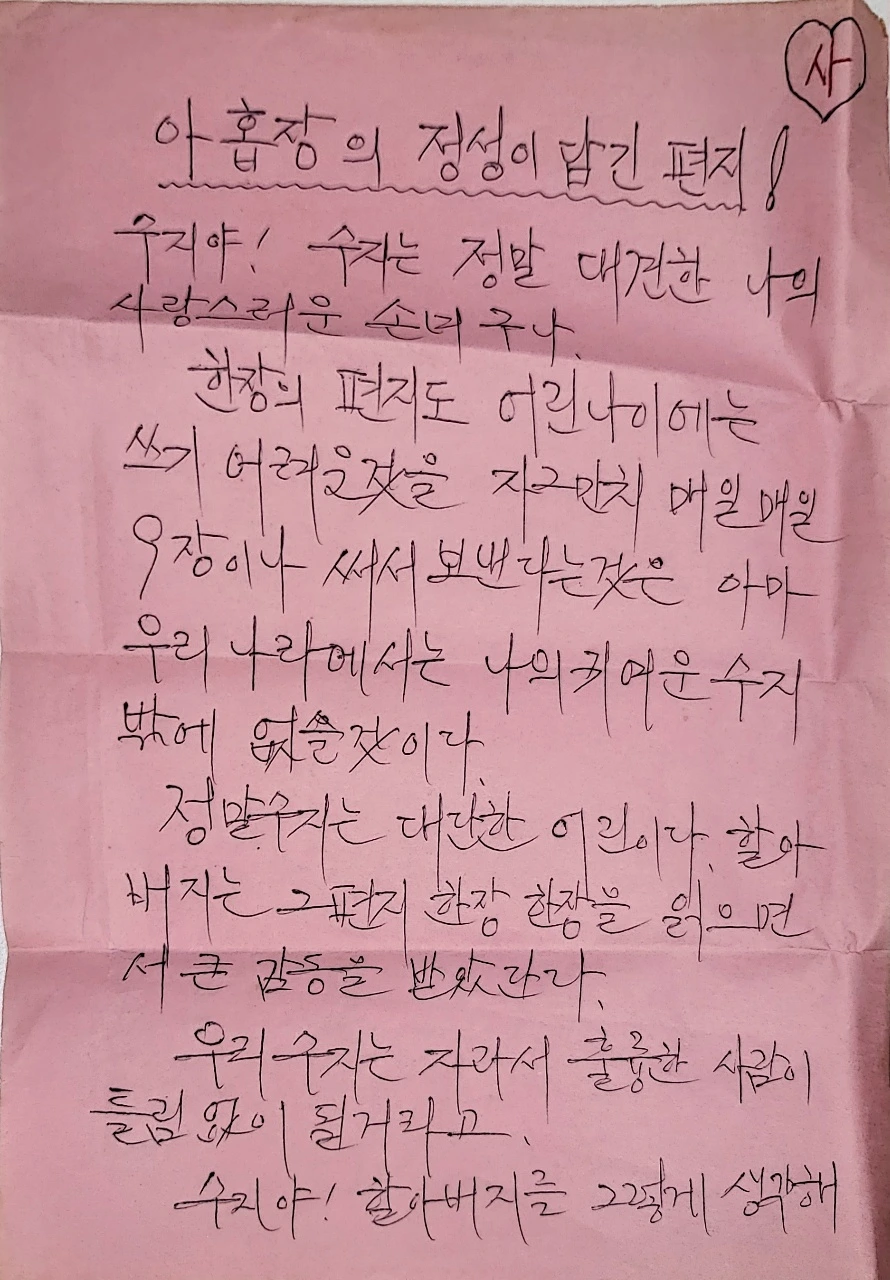 사
아홉장의 정성이 담긴 편지!
수지야! 수지는 정말 대견한 나의
사랑스러운 손녀구나.
한장의 편지도 어린나이에는
쓰기 어려울것을 자그만치 매일매일
9장이나 써서 보낸다는것은 아마
우리나라에서는 나의 귀여운 수지
밖에 없을것이다.
정말 수지는 대단한 어린이다. 할아
버지는 그 편지 한장 한장을 읽으면
서 큰 감동을 받았단다.
우리 수지는 자라서 훌륭한 사람이
틀림없이 될거라고.
수지야! 할아버지를 그렇게 생각해